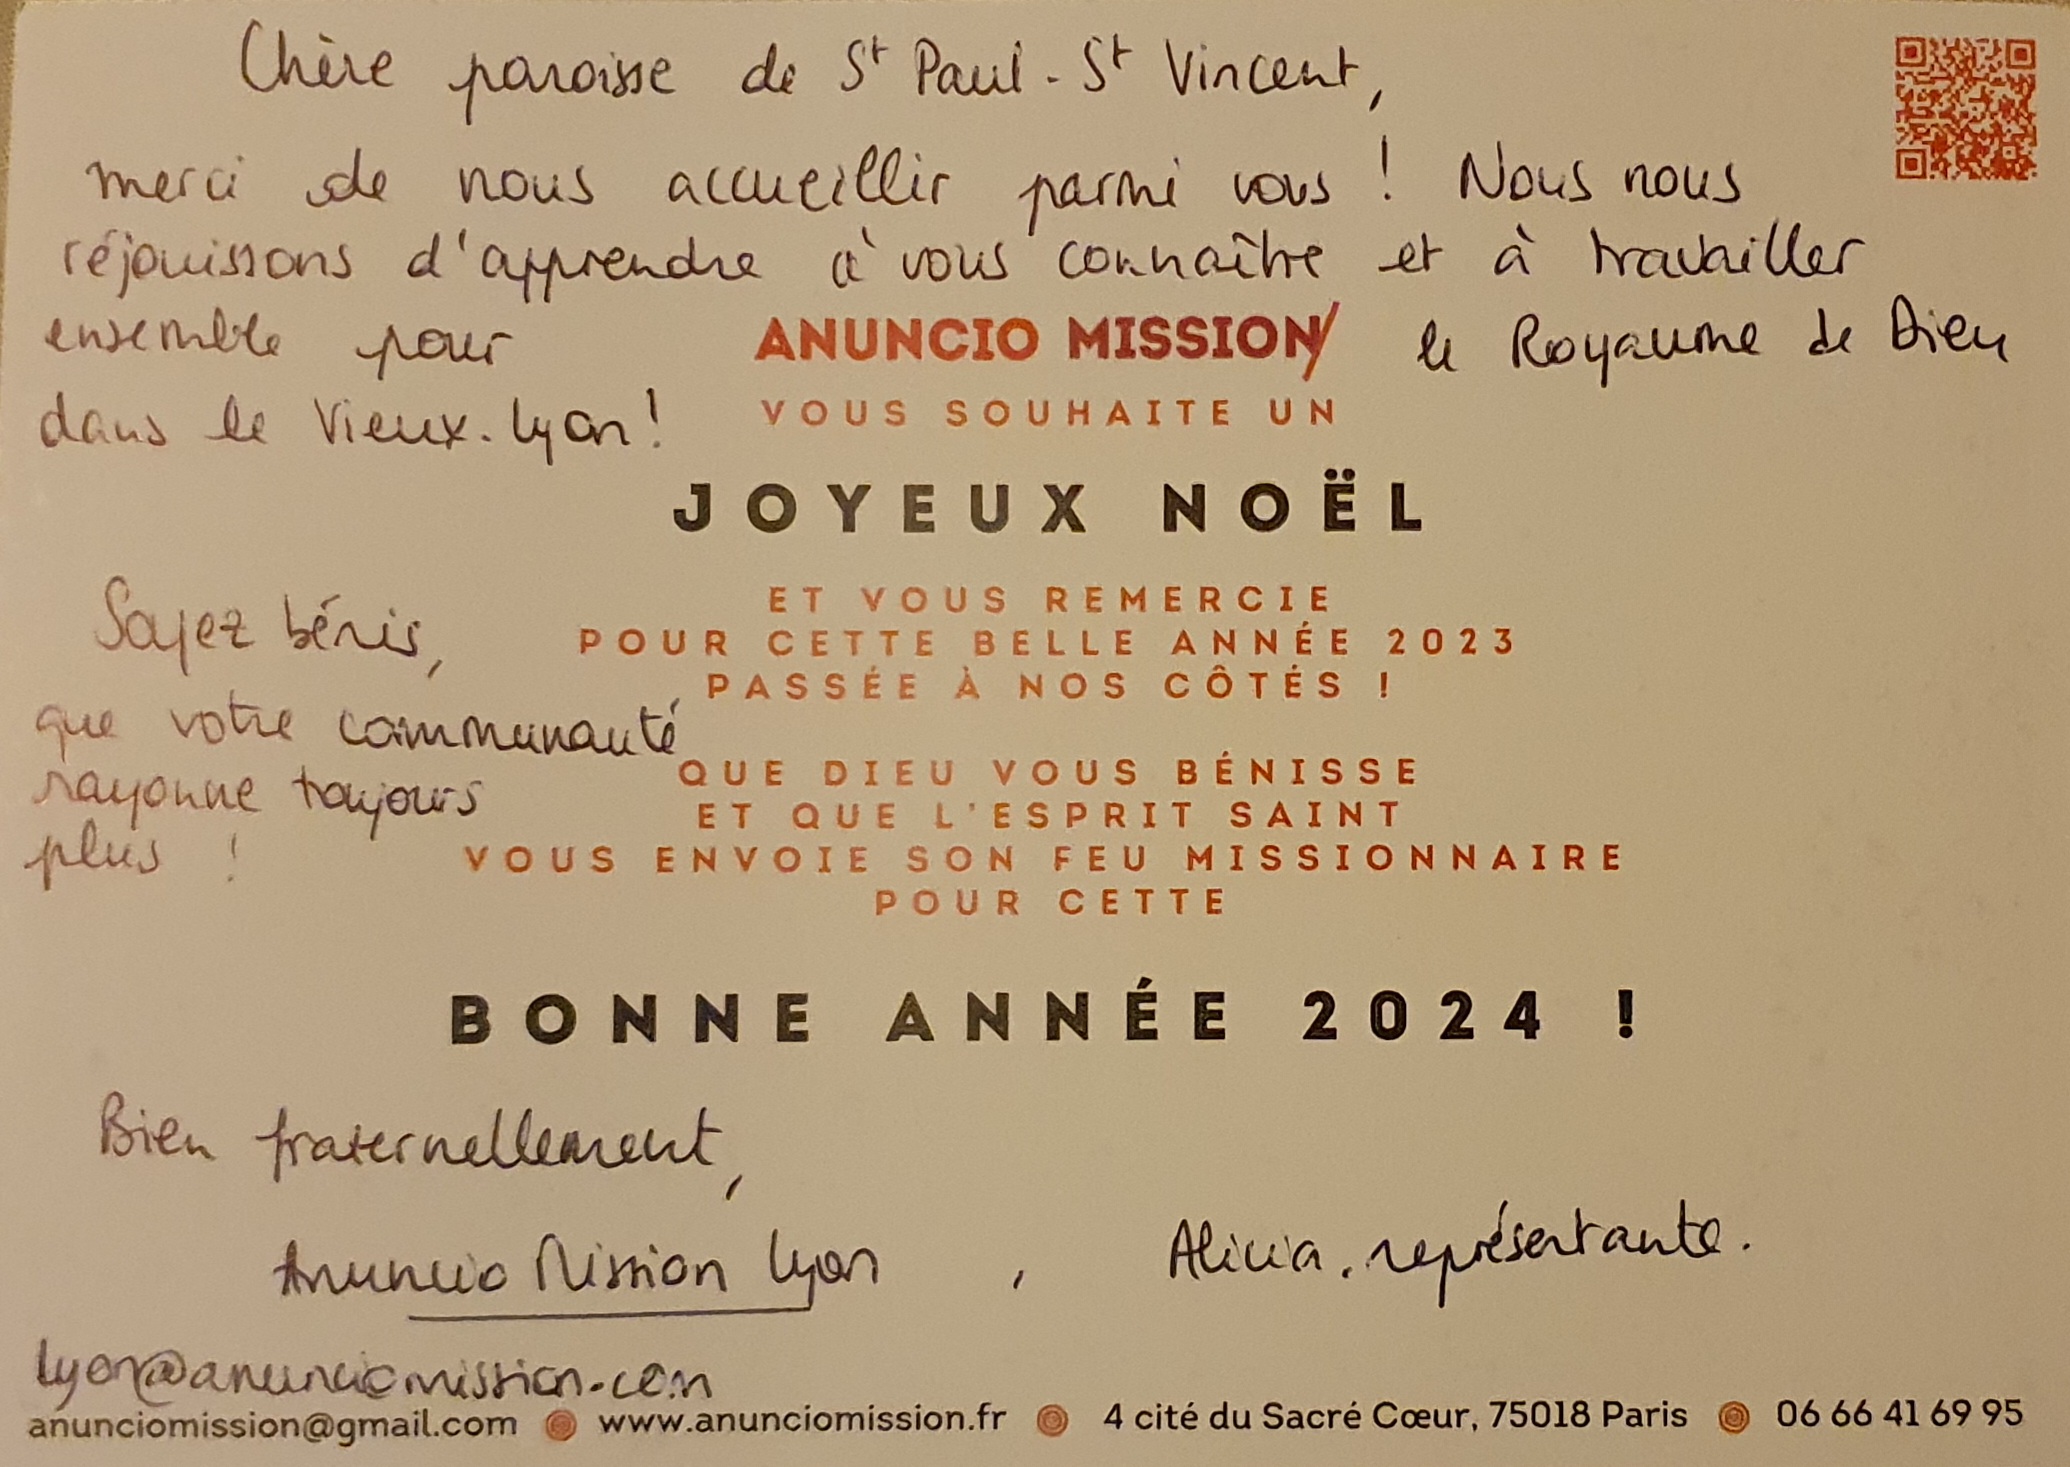 Chère paroisse de St Paul - St Vincent,
merci de nous accueillir parmi vous ! Nous nous
réjouissons d'apprendre à vous connaître et à travailler
ensemble pour le Royaume de Dieu
dans le Vieux-Lyon !
ANUNCIO MISSION
VOUS SOUHAITE UN
JOYEUX NOËL
ET VOUS REMERCIE
POUR CETTE BELLE ANNÉE 2023
PASSÉE À NOS CÔTÉS !
Soyez bénis,
que votre communauté
rayonne toujours
plus !
QUE DIEU VOUS BÉNISSE
ET QUE L'ESPRIT SAINT
VOUS ENVOIE SON FEU MISSIONNAIRE
POUR CETTE
BONNE ANNÉE 2024 !
Bien fraternellement,
Anuncio Mission Lyon , Alicia, représentante.
lyon@anunciomission.com
anunciomission@gmail.com www.anunciomission.fr 4 cité du Sacré Cœur, 75018 Paris 06 66 41 69 95